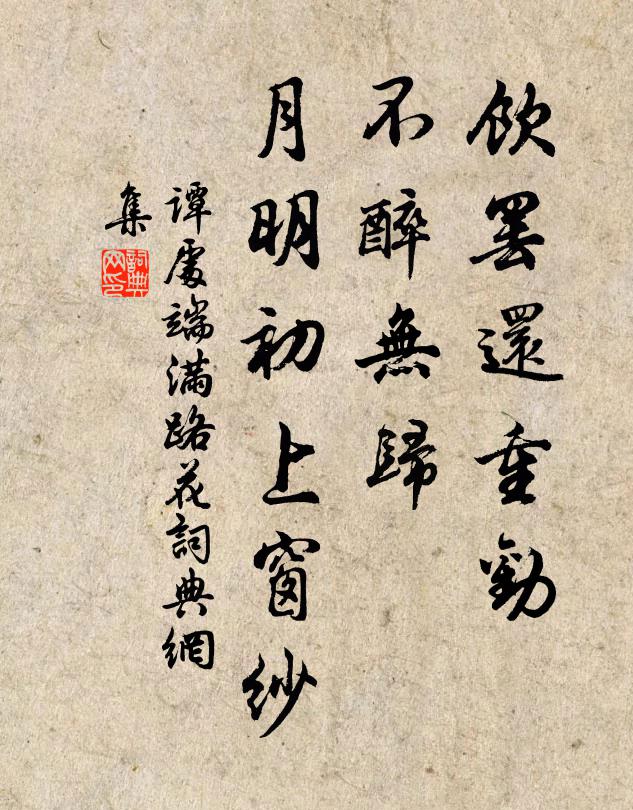 飲罷還重勸
不醉無歸
月明初上窗紗
譚處端滿路花詞典網
集
詞典
网印